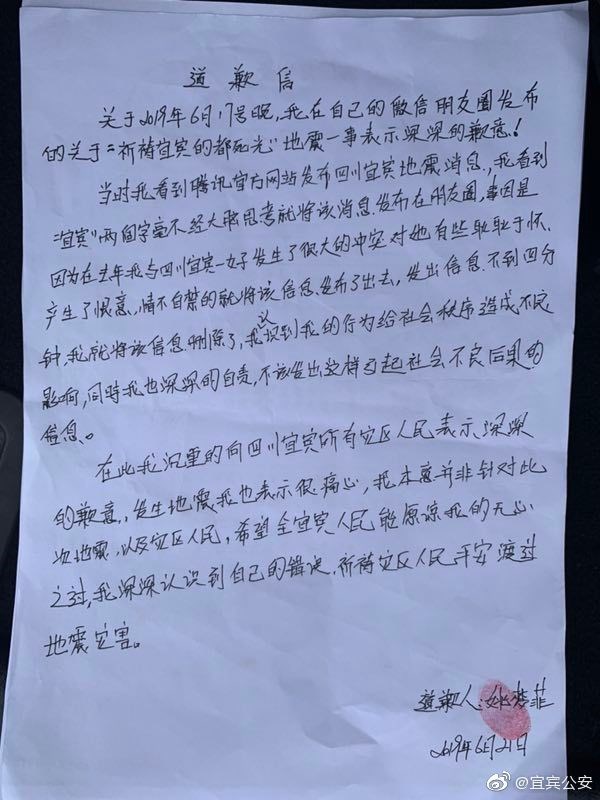 道歉信
关于2019年6月17号晚，我在自己的微信朋友圈发布
的关于“祈祷宜宾的都死光”地震一事表示深深的歉意！
当时我看到腾讯官方网站发布四川宜宾地震消息，我看到
“宜宾”两个字毫不经大脑思考就将该消息发布在朋友圈，事因是
因为在去年我与四川宜宾一女子发生了很大的冲突对她有些耿耿于怀，
产生了恨意，情不自禁的就将该信息发布了出去，发出信息不到四分
钟，我就将该信息删除了，我认识到我的行为给社会秩序造成不良
影响，同时我也深深的自责，不该发出这样引起社会不良后果的
信息。
在此我沉重的向四川宜宾所有灾区人民表示深深
的歉意，发生地震我也表示很痛心，我本意并非针对此
次地震，以及灾区人民，希望全宜宾人民能原谅我的无心
之过，我深深认识到自己的错误，祈祷灾区人民平安渡过
地震灾害。
道歉人：姚梦菲
2019年6月21日
@宜宾公安